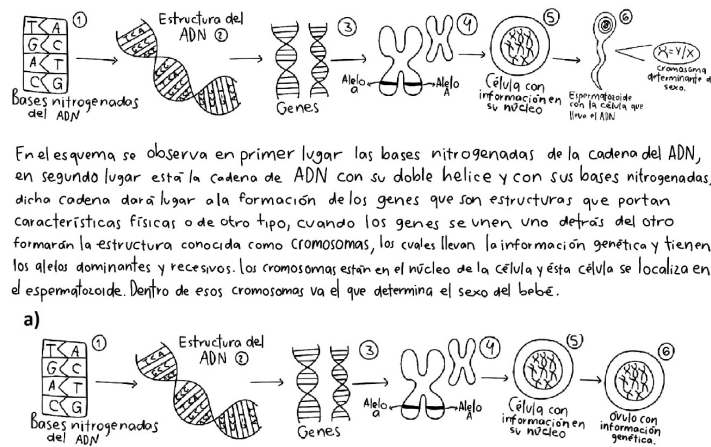 T A
G C
A T
C G
①
Bases nitrogenadas
del ADN
Estructura del
ADN ②
③
Genes
④
Alelo
a
Alelo
A
⑤
Célula con
información en
su núcleo
⑥
Espermatozoide
con la célula que
lleva el ADN
X=Y/X
cromosoma
determinante d
sexo.
En el esquema se observa en primer lugar las bases nitrogenadas de la cadena del ADN,
en segundo lugar está la cadena de ADN con su doble helice y con sus bases nitrogenadas,
dicha cadena dará lugar a la formación de los genes que son estructuras que portan
características físicas o de otro tipo, cuando los genes se unen uno detrás del otro
formarán la estructura conocida como cromosomas, los cuales llevan la información genética y tienen
los alelos dominantes y recesivos. Los cromosomas están en el núcleo de la célula y ésta célula se localiza en
el espermatozoide. Dentro de esos cromosomas va el que determina el sexo del bebé.
a)
T A
G C
A T
C G
①
Bases nitrogenadas
del ADN
Estructura del
ADN ②
③
Genes
④
Alelo
a
Alelo
A
⑤
Célula con
información en
su núcleo
⑥
Ovulo con
información
genética.